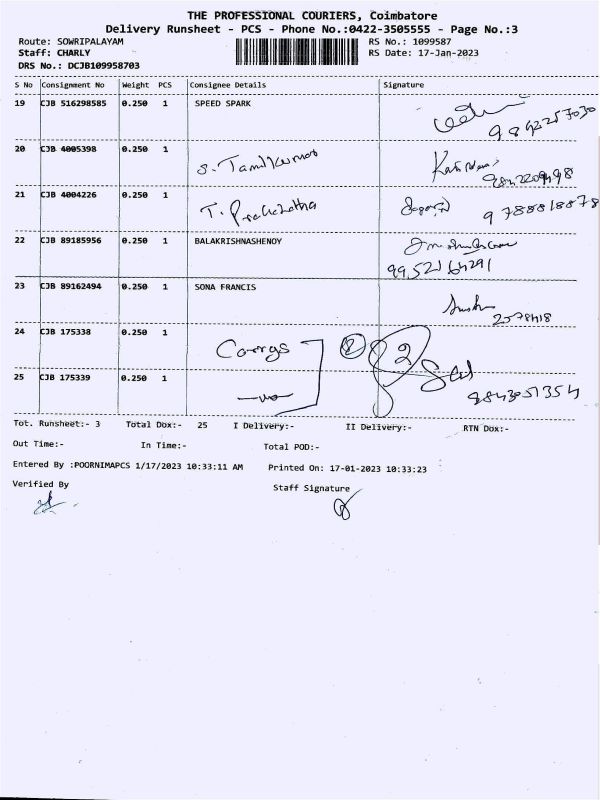 THE PROFESSIONAL COURIERS, Coimbatore
Delivery Runsheet - PCS - Phone No.:0422-3505555 - Page No.:3
Route: SOWRIPALAYAM RS No.: 1099587
Staff: CHARLY RS Date: 17-Jan-2023
DRS No.: DCJB109958703
S No Consignment No Weight PCS Consignee Details Signature
19 CJB 516298585 0.250 1 SPEED SPARK
20 CJB 4005398 0.250 1 S. Tamilkumar
21 CJB 4004226 0.250 1 T. 9788818878
22 CJB 89185956 0.250 1 BALAKRISHNASHENOY
9952164291
23 CJB 89162494 0.250 1 SONA FRANCIS
2578418
24 CJB 175338 0.250 1 2 2
25 CJB 175339 0.250 1
9843051354
Tot. Runsheet:- 3 Total Dox:- 25 I Delivery:- II Delivery:- RTN Dox:-
Out Time:- In Time:- Total POD:-
Entered By :POORNIMAPCS 1/17/2023 10:33:11 AM Printed On: 17-01-2023 10:33:23
Verified By Staff Signature